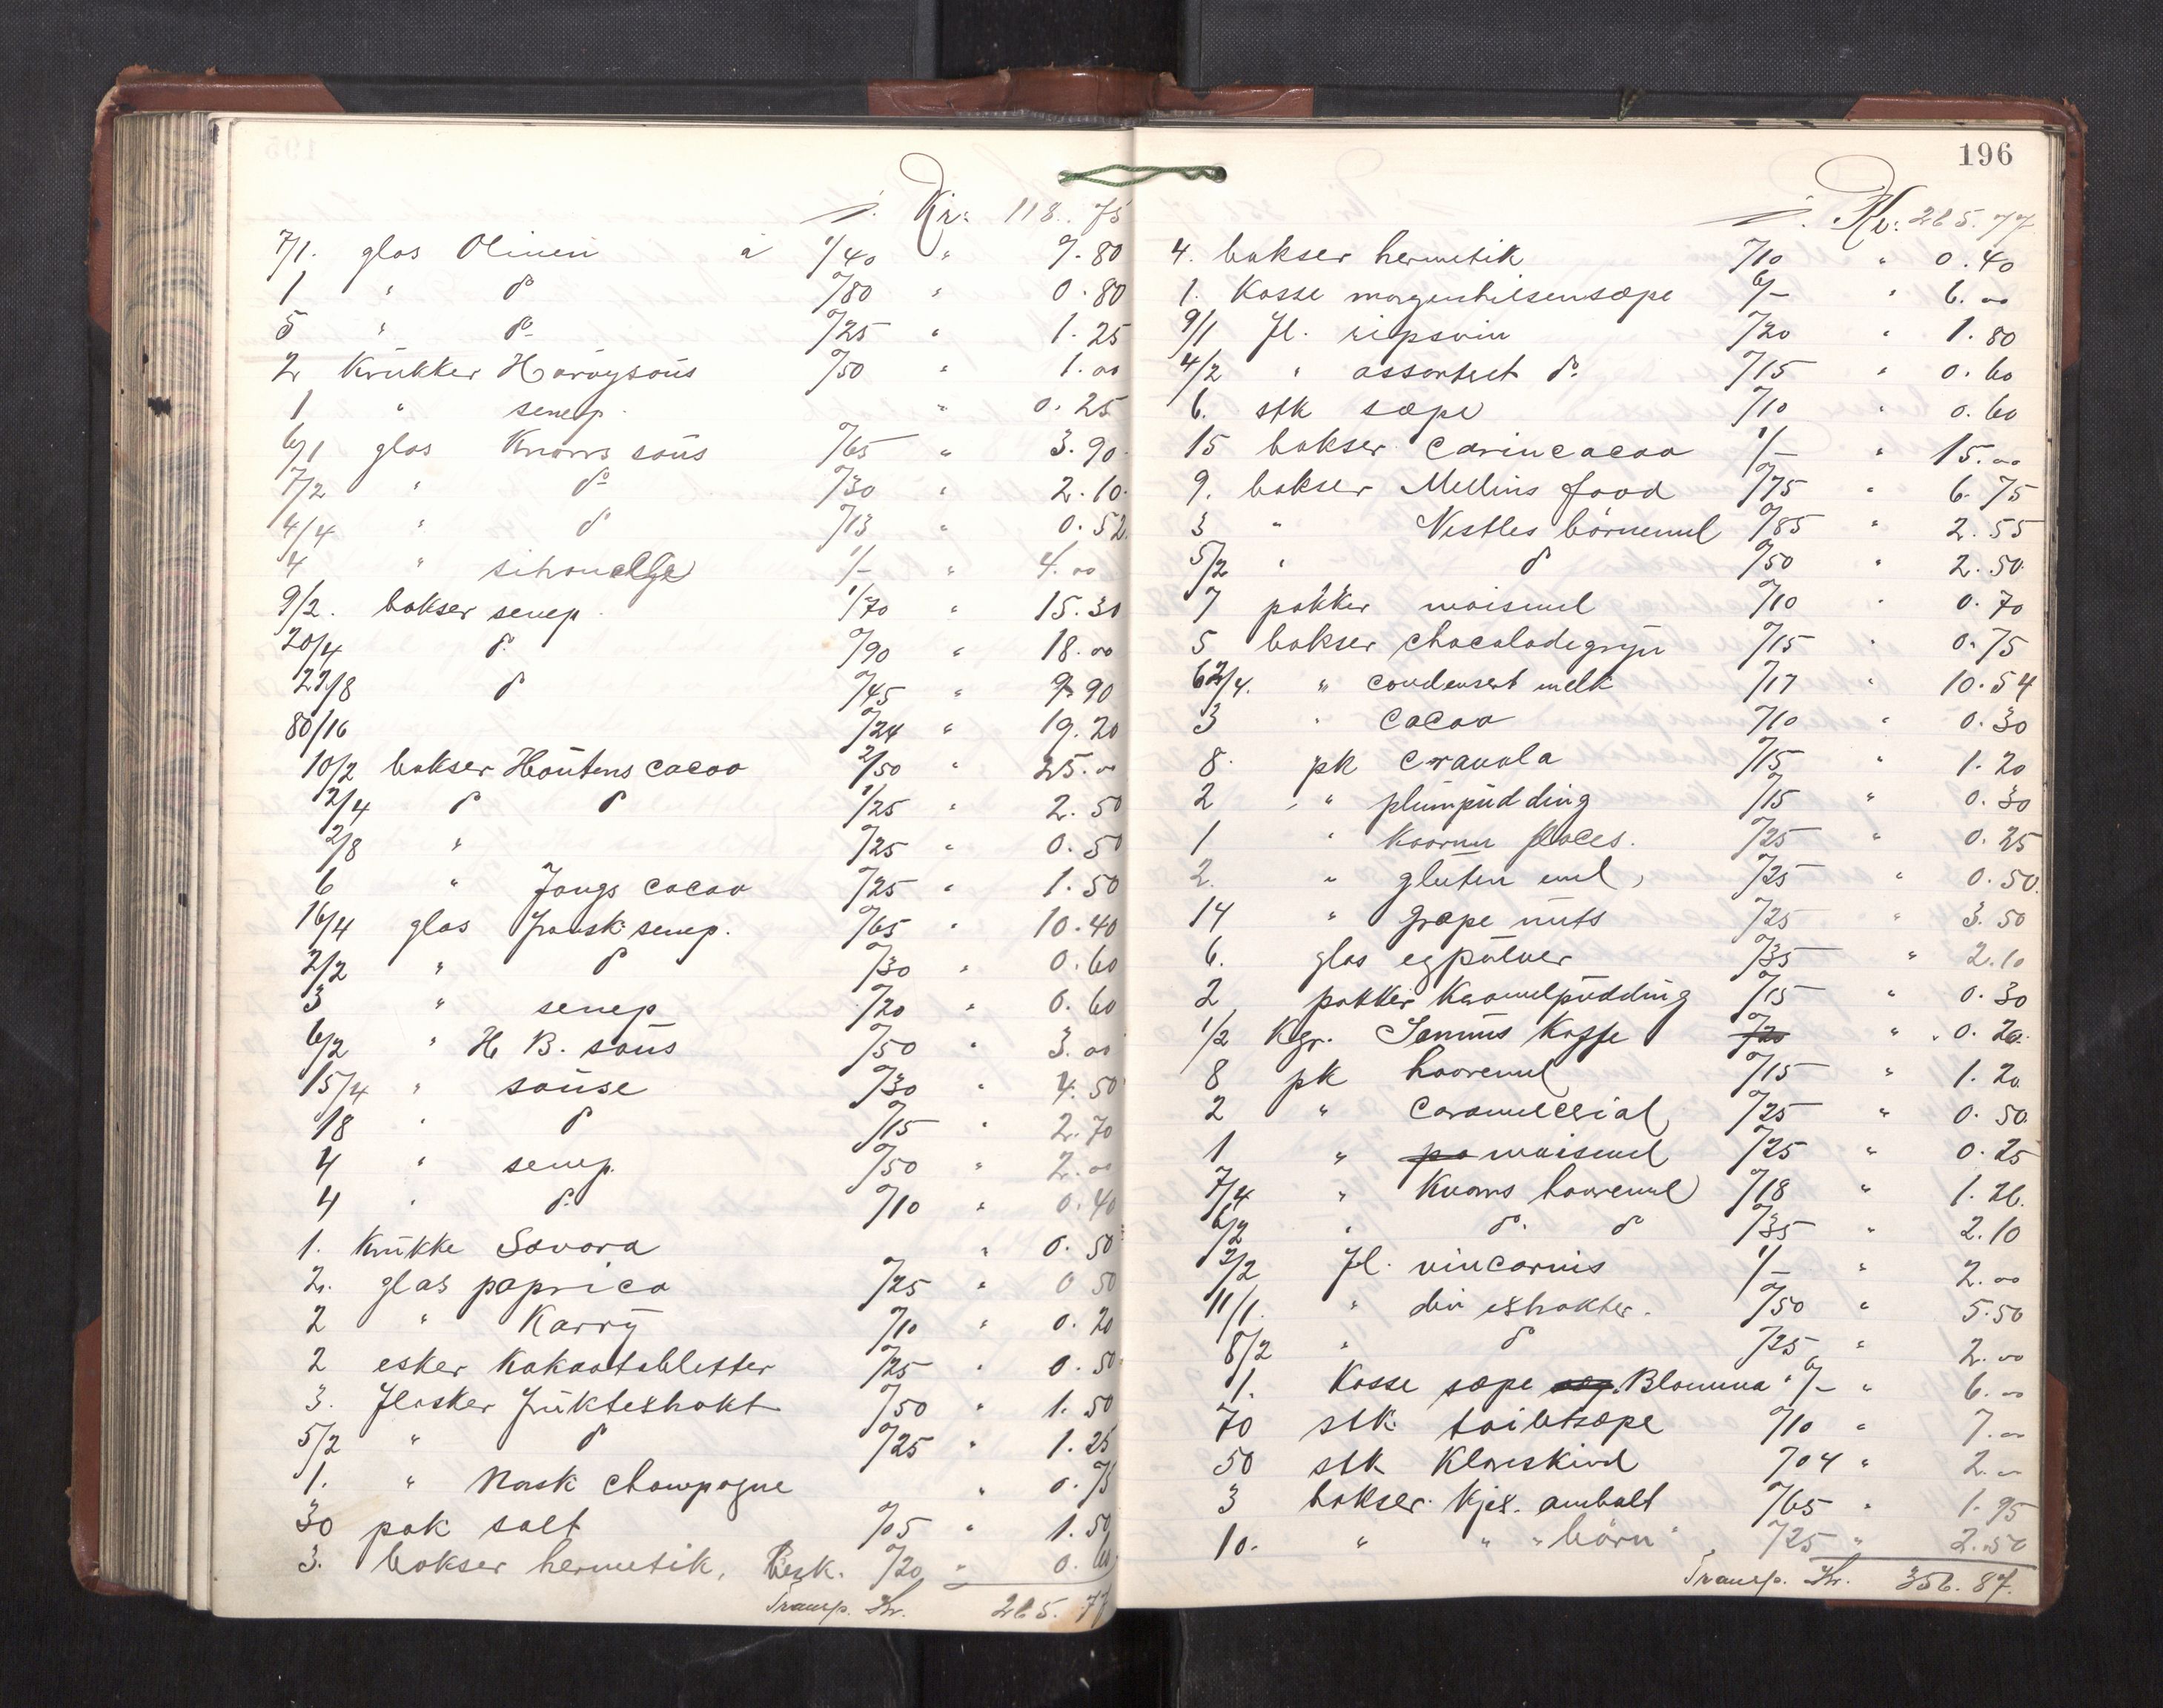 Kr: 118.75
7/1. glas Olinen à 1/40 " 9.80
1 " do 0/80 " 0.80
5 " do 0/25 " 1.25
2 Krükker Harveysaüs 0/50 " 1.00
1 " senep. " 0.25
6/1 glas Knorrs saüs 0/65 " 3.90
7/2 " do 0/30 " 2.10
4/4 " do 0/13 " 0.52
4 " 1/- " 4.00
9/2. bokser senep. 1/70 " 15.30
20/4 do 0/90 " 18.00
22/8 do 0/45 " 9.90
80/16 0/24 " 19.20
10/2 bokser Hoütens cacao 2/50 " 25.00
2/4 do do 1/25 " 2.50
2/8 " 0/25 " 0.50
6 " Jongs cacao 0/25 " 1.50
16/4 glas fransk senep. 0/65 " 10.40
2/2 " do 0/30 " 0.60
3 " senep 0/20 " 0.60
6/2 " H. B. saüs 0/50 " 3.00
15/4 " saüse 0/30 " 4.50
18 " do 0/15 " 2.70
4 " senep. 0/50 " 2.00
4 " do 0/10 " 0.40
1. Krükke Savora " 0.50
2. glas paprica 0/25 " 0.50
2 " Karry 0/10 " 0.20
2 esker Kakaotabletter 0/25 " 0.50
3. Flasker früktextrakt 0/50 " 1.50
5/2 " do 0/25 " 1.25
1. " Norsk champagne " 0.75
30 pak salt 0/05 " 1.50
3. bokser hermetik, besk. 0/20 " 0.60
Transp. Kr. 265.77
196
Kr. 265.77
4. bokser hermetik 0/10 " 0.40
1. Kasse morgenhilsensæpe 6/- " 6.00
9/1 fl. ripsvin 0/20 " 1.80
4/2 " assortert do. 0/15 " 0.60
6. stk sæpe 0/10 " 0.60
15 bokser Carincacao 1/- " 15.00
9. bokser Mellins food 0/75 " 6.75
3 " Nestles börnemel 0/85 " 2.55
5/2 " do 0/50 " 2.50
7 pakker maismel 0/10 " 0.70
5 bokser chocoladegryn 0/15 " 0.75
62/4. " condensert melk 0/17 " 10.54
3 " cacao 0/10 " 0.30
8. pk Granola 0/15 " 1.20
2 " plümpüdding 0/15 " 0.30
1 " Koornu flaces. 0/25 " 0.25
2. " glüten mel, 0/25 " 0.50
14 " grape nüts 0/25 " 3.50
6. glas egpülver 0/35 " 2.10
2 pakker Karamelpüdding 0/15 " 0.30
1/2 Kgr. Kaffe 0/20 " 0.20
8 pk havremel 0/15 " 1.20
2 " 0/25 " 0.50
1 " pa maismel 0/25 " 0.25
7/4 " Knorrs havremel 0/18 " 1.26
6/2 " do. do 0/35 " 2.10
2/2 fl. vincarnis 1/- " 2.00
11/1. " div extrakter. 0/50 " 5.50
8/2 " do 0/25 " 2.00
1. Kasse sæpe Blomma 6/- " 6.00
70 stk toiletsæpe 0/10 " 7.00
50 stk Klæskind 0/04 " 2.00
3 bokser Kjex. ambalt 0/65 " 1.95
10. " " "börn" 0/25 " 2.50
Transp. Kr. 356.87.